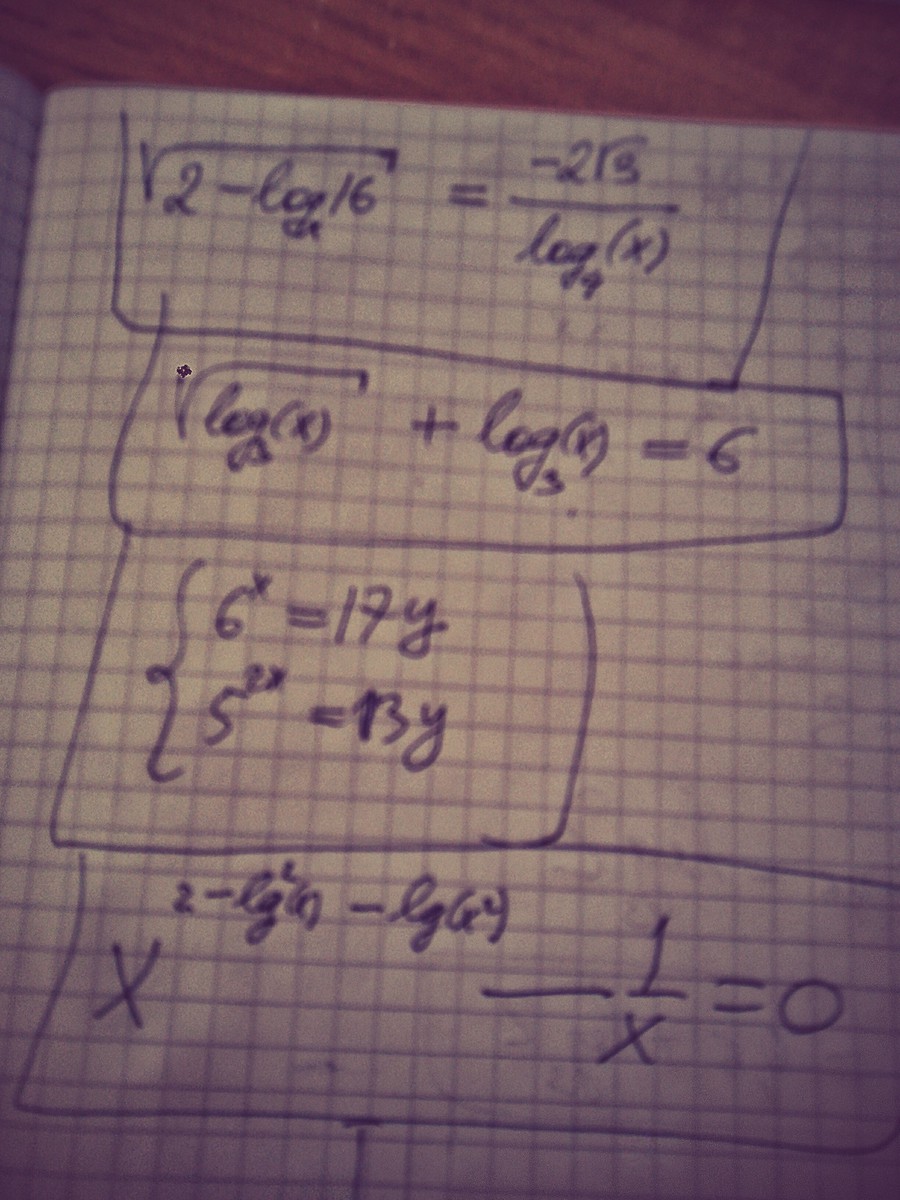 √(2 - log 16) = -2√3 / log₄(x)
√(log₃(x)) + log₃(x) = 6
{ 6^x = 17y
5^(2x) = 13y
x^(2 - lg²(x) - lg(x²)) - 1/x = 0